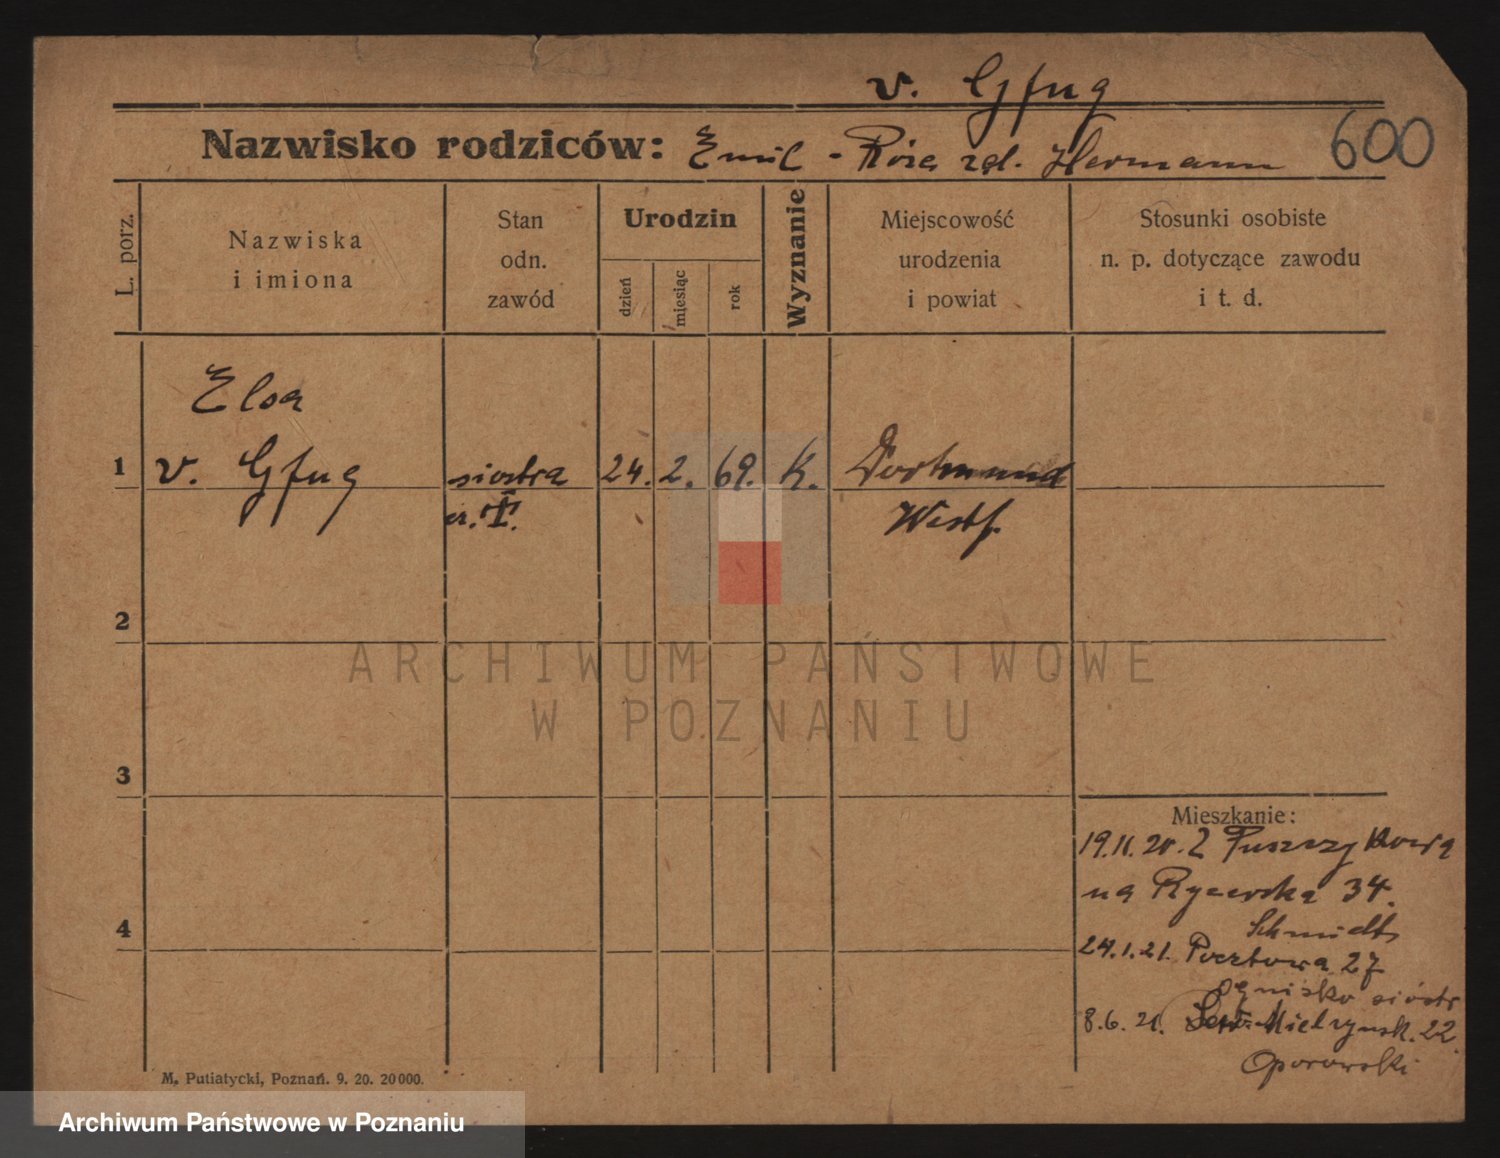 v. Gfug
Nazwisko rodziców: Emil - Róża zd. Hermann 600
L. porz.
Nazwiska
i imiona
Stan
odn.
zawód
Urodzin
dzień
miesiąc
rok
Wyznanie
Miejscowość
urodzenia
i powiat
Stosunki osobiste
n. p. dotyczące zawodu
i t. d.
Elsa
1 v. Gfug siostra 24. 2. 69. K. Dortmund
Westf.
2
3
4
Mieszkanie:
19.11.20. Z Puszczykowa
na Rycerska 34.
Schmidt
24.1.21. Pocztowa 27
Ognisko sióstr
8.6.21. Sew. Mielzynsk. 22.
Oporowski
M. Putiatycki, Poznań. 9. 20. 20000.
ARCHIWUM PAŃSTWOWE
W POZNANIU
Archiwum Państwowe w Poznaniu